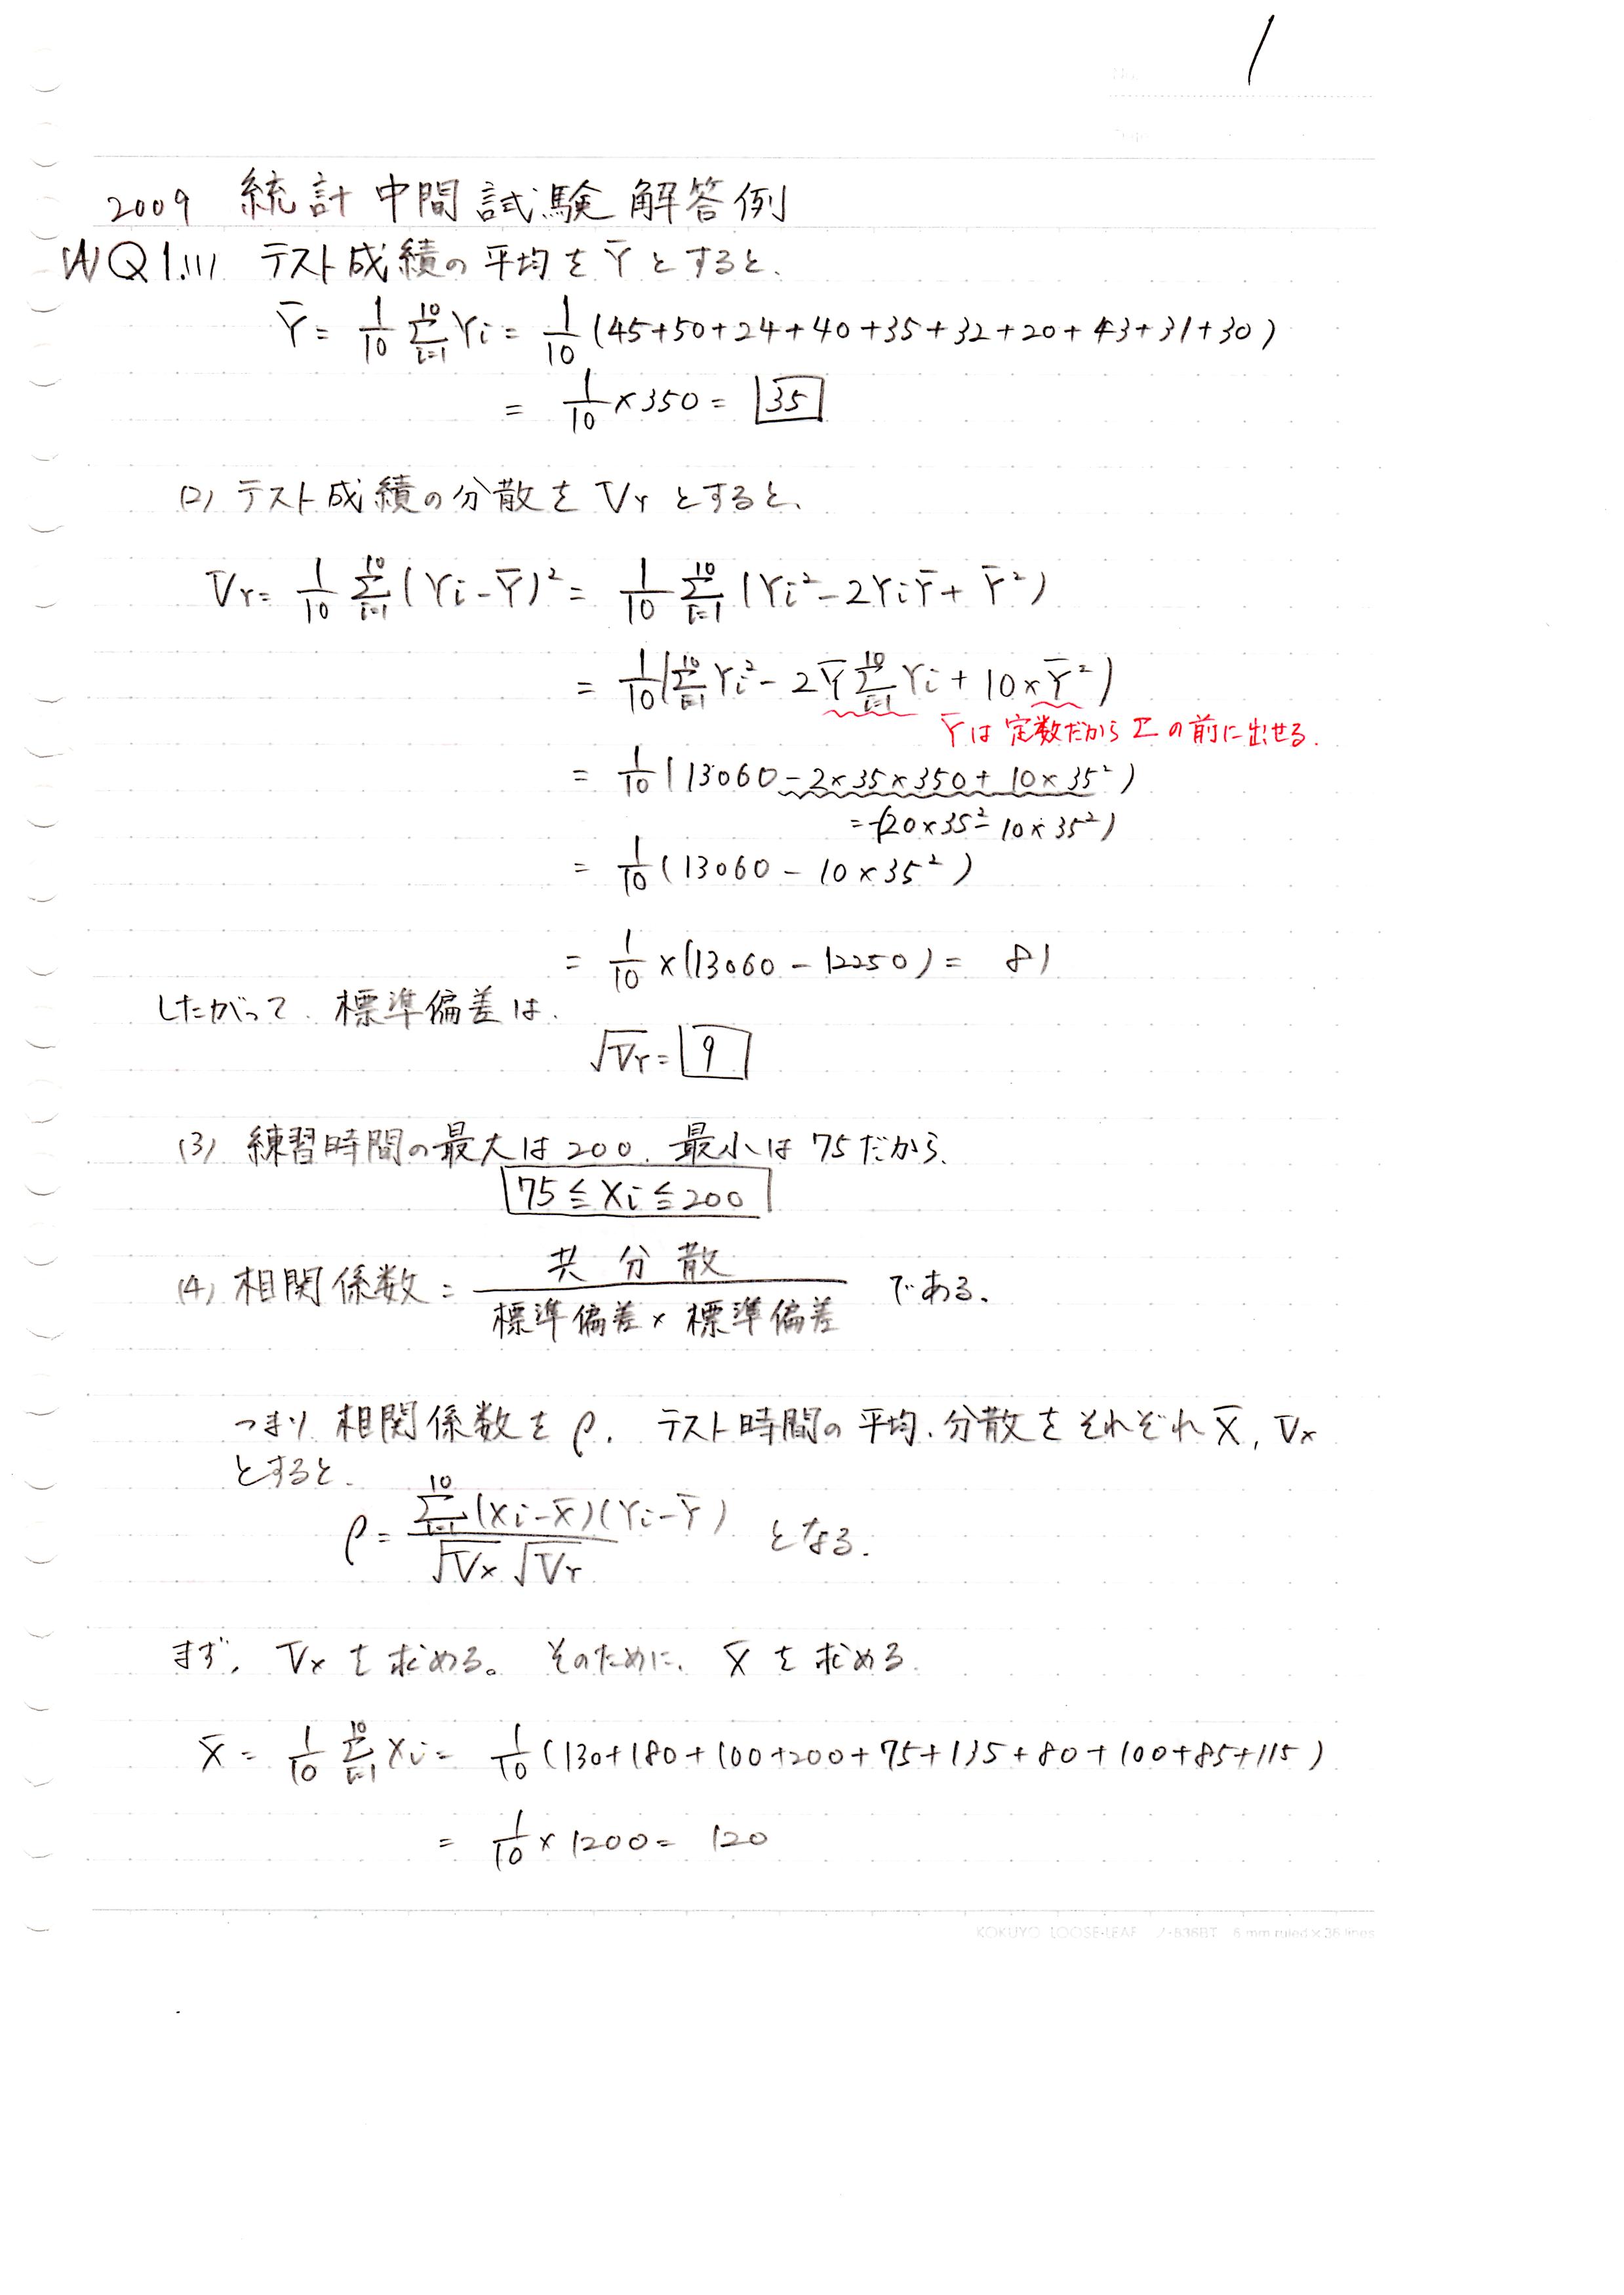 1
2009 統計 中間試験 解答例
(A) Q1.(1) テスト成績の平均を Ȳ とすると、
Ȳ = 1/10 Σ_{i=1}^{10} Yi = 1/10 (45+50+24+40+35+32+20+43+31+30)
= 1/10 × 350 = 35
(2) テスト成績の分散を V_Y とすると、
V_Y = 1/10 Σ_{i=1}^{10} (Yi - Ȳ)² = 1/10 Σ_{i=1}^{10} (Yi² - 2YiȲ + Ȳ²)
= 1/10 (Σ_{i=1}^{10} Yi² - 2Ȳ Σ_{i=1}^{10} Yi + 10×Ȳ²)
Ȳは定数だからΣの前に出せる.
= 1/10 (13060 - 2×35×350 + 10×35²)
= -(20×35² - 10×35²)
= 1/10 (13060 - 10×35²)
= 1/10 × (13060 - 12250) = 81
したがって、標準偏差は、
√V_Y = 9
(3) 練習時間の最大は 200、最小は 75だから、
75 ≦ Xi ≦ 200
(4) 相関係数 = 共分散 / 標準偏差 × 標準偏差 である.
つまり、相関係数を ρ, テスト時間の平均、分散をそれぞれ X̄, V_X
とすると、
ρ = Σ_{i=1}^{10} (Xi - X̄)(Yi - Ȳ) / √V_X √V_Y となる.
まず, V_X を求める。そのために、X̄ を求める
X̄ = 1/10 Σ_{i=1}^{10} Xi = 1/10 (130+180+100+200+75+135+80+100+85+115)
= 1/10 × 1200 = 120
KOKUYO LOOSE-LEAF ノ-836BT 6 mm ruled × 36 lines